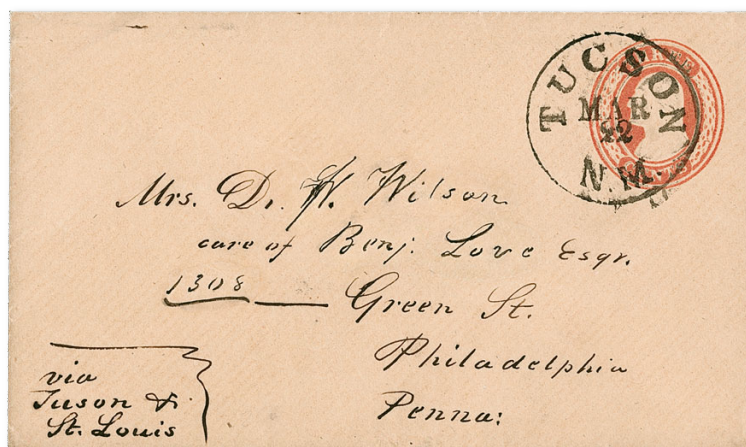 TUCSON
MAR
22
N.M.
Mrs. Dr. W. Wilson
care of Benj. Love Esqr.
1308 Green St.
Philadelphia
Penna:
via
Tuson &
St. Louis